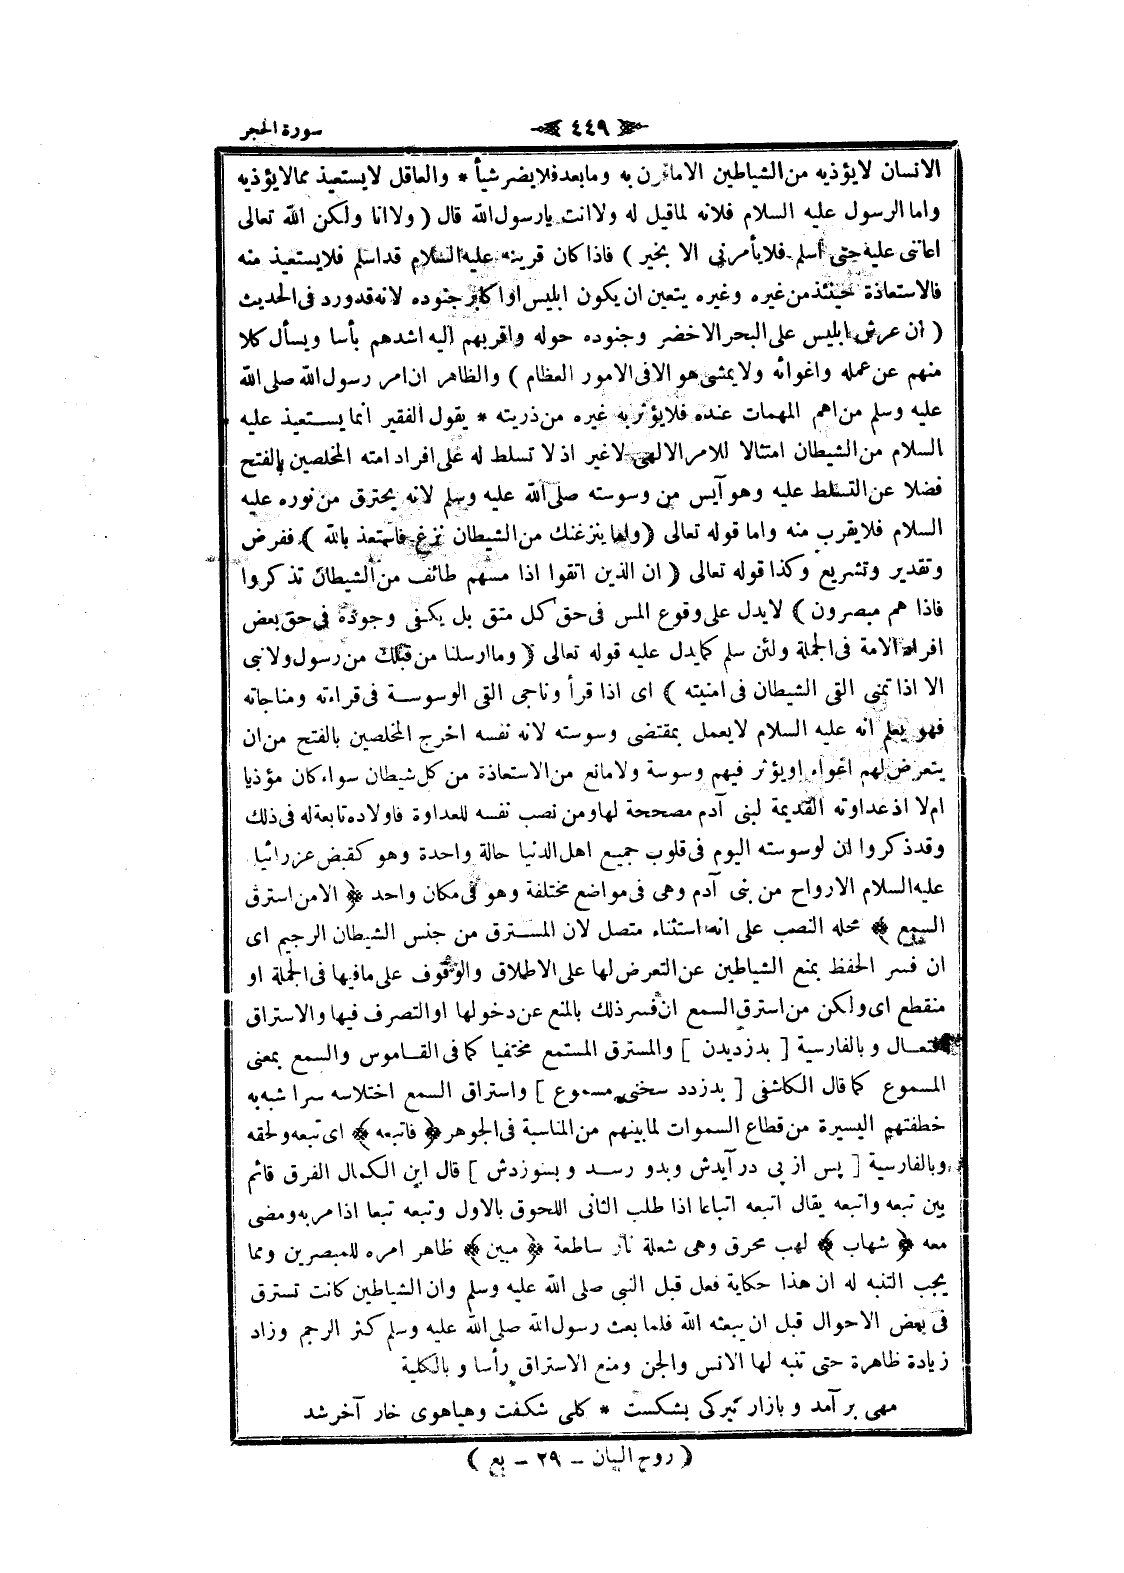 سورة الحجر
٤٤٩
الانسان لايؤذيه من الشياطين الا ماقرن به ومابعد فلا يضر شيأ * والعاقل لا يستعيذ مما لا يؤذيه
واما الرسول عليه السلام فلانه لما قيل له ولا انت يا رسول الله قال ( ولا انا ولكن الله تعالى
اعاننى عليه حتى اسلم فلا يأمرنى الا بخير ) فاذا كان قرينه عليه السلام قد اسلم فلا يستعيذ منه
فالاستعاذة حينئذ من غيره وغيره يتعين ان يكون ابليس او اكابر جنوده لانه قد ورد فى الحديث
( ان عرش ابليس على البحر الاخضر وجنوده حوله واقربهم اليه اشدهم بأسا ويسأل كلا
منهم عن عمله واغوائه ولا يمشى هو الا فى الامور العظام ) والظاهر ان امر رسول الله صلى الله
عليه وسلم من اهم المهمات عنده فلا يؤثر به غيره من ذريته * يقول الفقير انما يستعيذ عليه
السلام من الشيطان امتثالا للامر الالهى لا غير اذ لا تسلط له على افراد امته المخلصين بالفتح
فضلا عن التسلط عليه وهو آيس من وسوسته صلى الله عليه وسلم لانه يحترق من نوره عليه
السلام فلا يقرب منه واما قوله تعالى ( واما ينزغنك من الشيطان نزغ فاستعذ بالله ) ففرض
وتقدير وتشريع وكذا قوله تعالى ( ان الذين اتقوا اذا مسهم طائف من الشيطان تذكروا
فاذا هم مبصرون ) لا يدل على وقوع المس فى حق كل متق بل يكفى وجوده فى حق بعض
افراد الامة فى الجملة ولئن سلم كما يدل عليه قوله تعالى ( وما ارسلنا من قبلك من رسول ولا نبى
الا اذا تمنى القى الشيطان فى امنيته ) اى اذا قرأ وناجى القى الوسوسة فى قراءته ومناجاته
فهو يعلم انه عليه السلام لا يعمل بمقتضى وسوسته لانه نفسه اخرج المخلصين بالفتح من ان
يتعرض لهم اغواء او يؤثر فيهم وسوسة ولا مانع من الاستعاذة من كل شيطان سواء كان مؤذيا
ام لا اذ عداوته القديمة لبنى آدم مصححة لها ومن نصب نفسه للعداوة فاولاده تابعة له فى ذلك
وقد ذكروا ان لوسوسته اليوم فى قلوب جميع اهل الدنيا حالة واحدة وهو كقبض عزرائيل
عليه السلام الارواح من بنى آدم وهى فى مواضع مختلفة وهو فى مكان واحد ﴿ الا من استرق
السمع ﴾ محله النصب على انه استثناء متصل لان المسترق من جنس الشيطان الرجيم اى
ان فسر الحفظ بمنع الشياطين عن التعرض لها على الاطلاق والوقوف على مافيها فى الجملة او
منقطع اى ولكن من استرق السمع ان فسر ذلك بالمنع عن دخولها او التصرف فيها والاستراق
افتعال وبالفارسية [ بدزديدن ] والمسترق المستمع مختفيا كما فى القاموس والسمع بمعنى
المسموع كما قال الكاشفى [ بدزدد سخنى مسموع ] واستراق السمع اختلاسه سرا شبه به
خطفتهم اليسيرة من قطاع السموات لما بينهم من المناسبة فى الجوهر ﴿ فاتبعه ﴾ اى تبعه ولحقه
وبالفارسية [ پس از پى در آيدش وبدو رسد و بسوزدش ] قال ابن الكمال الفرق قائم
بين تبعه واتبعه يقال اتبعه اتباعا اذا طلب الثانى اللحوق بالاول وتبعه تبعا اذا مر به ومضى
معه ﴿ شهاب ﴾ لهب محرق وهى شعلة نار ساطعة ﴿ مبين ﴾ ظاهر امره للمبصرين ومما
يجب التنبه له ان هذا حكاية فعل قبل النبى صلى الله عليه وسلم وان الشياطين كانت تسترق
فى بعض الاحوال قبل ان يبعثه الله فلما بعث رسول الله صلى الله عليه وسلم كثر الرجم وزاد
زيادة ظاهرة حتى تنبه لها الانس والجن ومنع الاستراق رأسا وبالكلية
مهى بر آمد و بازار تيركى بشكست * كلى شكفت وهياهوى خار آخر شد
( روح البيان – ٢٩ – بع )